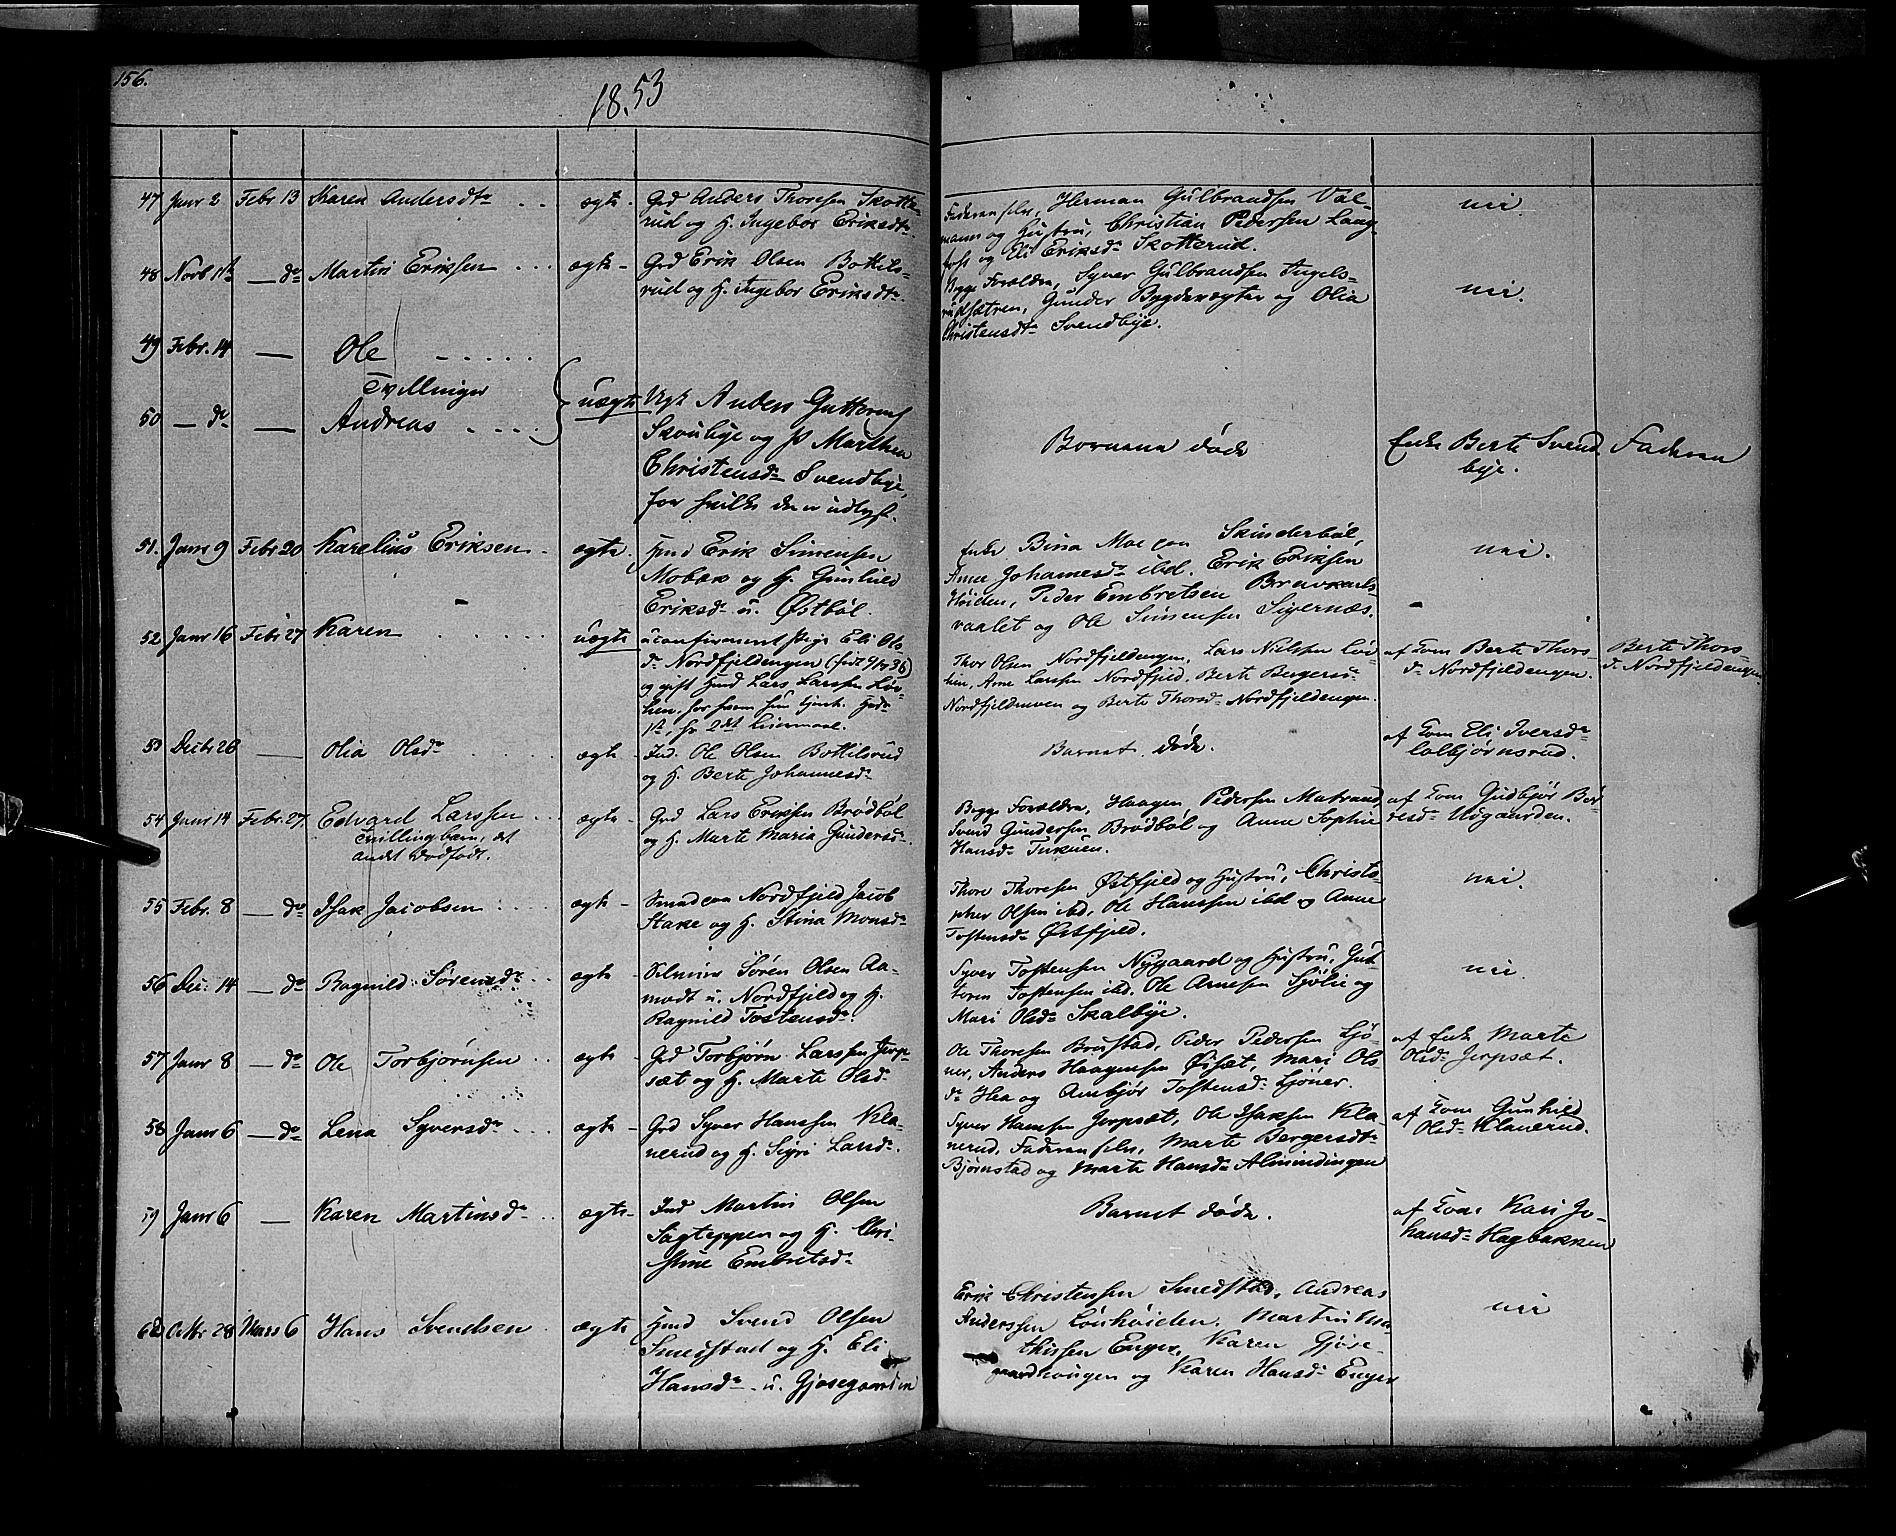 156.
18.53
47 Janr 2 Febr 13 Karen Andersdtr ægte Grd Anders Thoresen Skotte-
rud og H. Ingebor Eriksdtr.
Faderen selv, Herman Gulbrandsen Val-
mann og Hustru, Christian Pedersen Lang-
foss og Eli Eriksdr Skotterud.
nei.
48 Novb 11te — do Martin Eriksen ægte Grd Erik Olsen Bottils-
rud og H. Ingebor Eriksdtr.
Begge Forældre, Syver Gulbrandsen Ingels-
rudsætren, Gunder Bygdevægter og Olia
Christensdtr Svendbye.
nei.
49 Febr. 14 — Ole
Tvillinger
50 — do — Andreas uægte Ugk Anders Guttormsen
Skoubye og P. Marthea
Christensdr Svendbye,
for hvilke der er udlyst.
Børnene døde
Enke Berte Svend-
bye.
Faderen
51. Janr 9 Febr 20 Karelius Eriksen ægte Hmd Erik Simensen
Mobæk og H. Gunhild
Eriksdr u. Østbøl.
Enke Bina Moe paa Skinderbøl,
Anne Johannesdr ibd. Erik Eriksen
Høiden, Peder Embretsen Bravkarls-
vaalet og Ole Simensen Sigernæs.
nei.
52 Janr 16 Febr 27 Karen uægte uconfirmeret Pige Eli Ols-
dr Nordfjeldengen (født 9/4 36)
og gift Hmd Lars Larssen Løv-
hen, for ham hun hendes
1ste, for 2det Leiermaal.
Thor Olsen Nordfjeldengen, Lars Nielsen Løv-
hen, Arne Larssen Nordfjeld, Berte Bergersdr
Nordfjeldengen og Berte Thorsdr Nordfjeldengen.
af Jom Berte Thors-
dr Nordfjeldengen.
Berte Thors-
dr Nordfjeldengen.
53 Decbr 26 — Olia Olsdr ægte Ind. Ole Olsen Bottilsrud
og H. Berte Johannesdr
Barnet døde.
af Jom Eli Iversdr
Colbjørnsrud.
54 Janr 14 Febr. 27 Edvard Larssen
Tvillingbarn, det
andet Dødfødt.
ægte Grd Lars Eriksen Brødbøl
og H. Marte Maria Gundersdr.
Begge Forældre, Haagen Pedersen Matrand,
Svend Gundersen Brødbøl og Anne Sophie
Hansdr Tuknen.
af Jom Gudbjør Bør-
resdr Udgaarden.
55 Febr. 8 — do Isak Jacobsen ægte Smed paa Nordfjeld Jacob
Stake og H. Stina Monsdr
Thore Thoresen Østfjeld og Hustru, Christo-
pher Olsen ibd, Ole Hanssen ibd og Anne
Tostensdr Østfjeld.
nei.
56 Dec. 14 — do Ragnild Sørensdr ægte Selveier Søren Olsen Aa-
modt u. Nordfjeld og H.
Ragnild Tostensdr.
Syver Tostensen Nygaard og Hustru, Gut-
torm Tostensen ibd. Ole Arnesen Sjølie og
Mari Olsdr Skalbye.
nei.
57 Janr 8 — do Ole Torbjørnsen ægte Grd Torbjørn Larssen Jerp-
sæt og H. Marte Olsdr
Ole Thoresen Brustad, Peder Pedersen Ljø-
ner, Anders Haagensen Øisæt, Mari Ols-
dr Hea og Ambjør Tostensdr Ljøner.
af Enke Marte
Olsdr Jerpsæt.
58 Janr 6 — do Lena Syversdr ægte Grd Syver Hanssen Kla-
nerud og H. Sigri Larsdr.
Syver Hanssen Jerpsæt, Ole Isaksen Kla-
nerud, Faderen selv, Marte Bergersdtr
Bjørnstad og Marte Hansdr Almindingen
af Jom Gunhild
Olsdr Klanerud.
59 Janr 6 — Karen Martinsdr ægte Ind Martin Olsen
Sagteppen og H. Chri-
stine Embretsdr
Barnet døde.
af Kone Kari Jo-
hansdr Hagbakken
60 Octbr 28 Mars 6 Hans Svendsen ægte Hmd Svend Olsen
Smedstad og H. Eli
Hansdr u. Gjøsegaarden
Erik Christensen Smedstad, Andreas
Anderssen Lønhøiden, Martin Ma-
thisen Enger, Karen Gjøse-
gaardseugen og Karen Hansdr Enger
nei